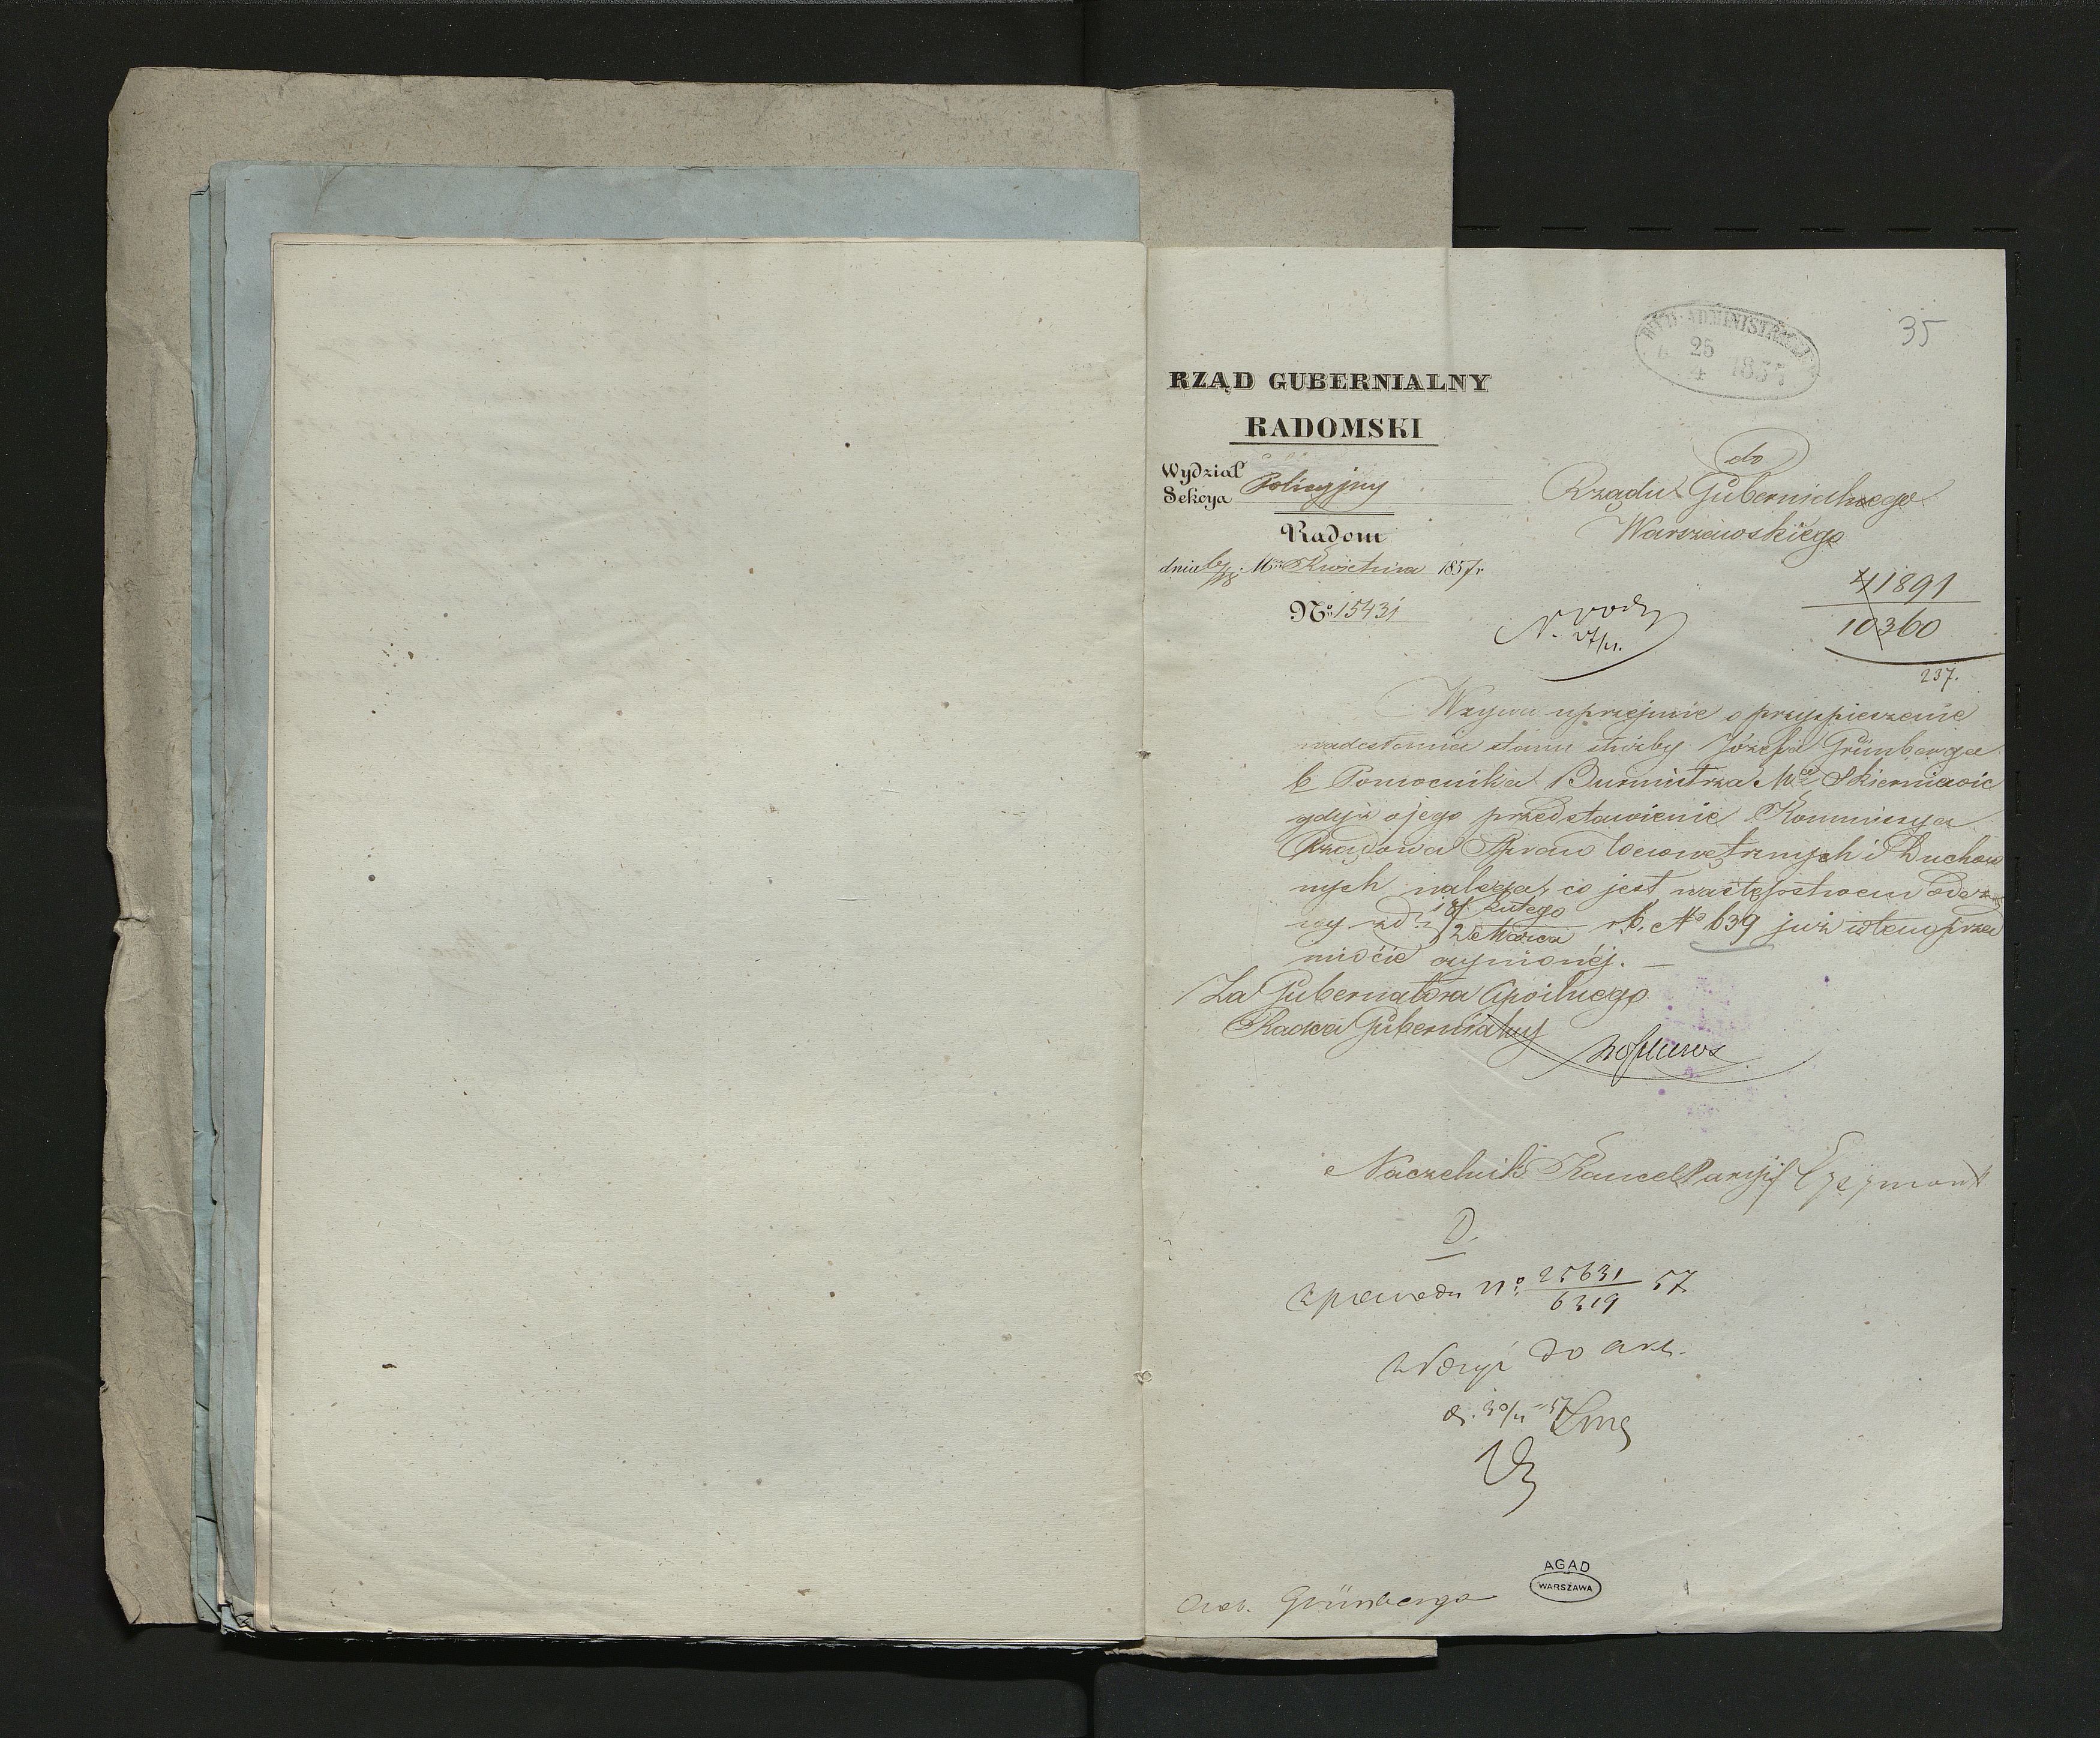 35
WYD. ADMINISTRACYI
25
4 1857
RZĄD GUBERNIALNY
RADOMSKI
Wydział Policyjny
Sekcya
Radom
dnia 6/18 Mca Kwietnia 1857 r
No 15431
do
Rządu Gubernialnego
Warszawskiego
41891
10360
237.
N. 27/4.
Wzywa uprzejmie o przyspieszenie
nadesłania stanu służby Józefa Grünberga
b Pomocnika Burmistrza Mta Skierniewic
gdyż o jego przedstawienie Kommissya
Rządowa Spraw Wewnętrznych i Duchow
nych nalega, co jest następstwem odez
wy z d. 18 Lutego / 2 Marca r. b. No 639 już w tém przed
miocie czynionéj.
Za Gubernatora Cywilnego
Radca Gubernialny
Naczelnik Kancellaryi
D.
Z powodu No 25631 / 6319 57
Złożyć do akt.
d. 30/4 57
Grünberga
AGAD
WARSZAWA